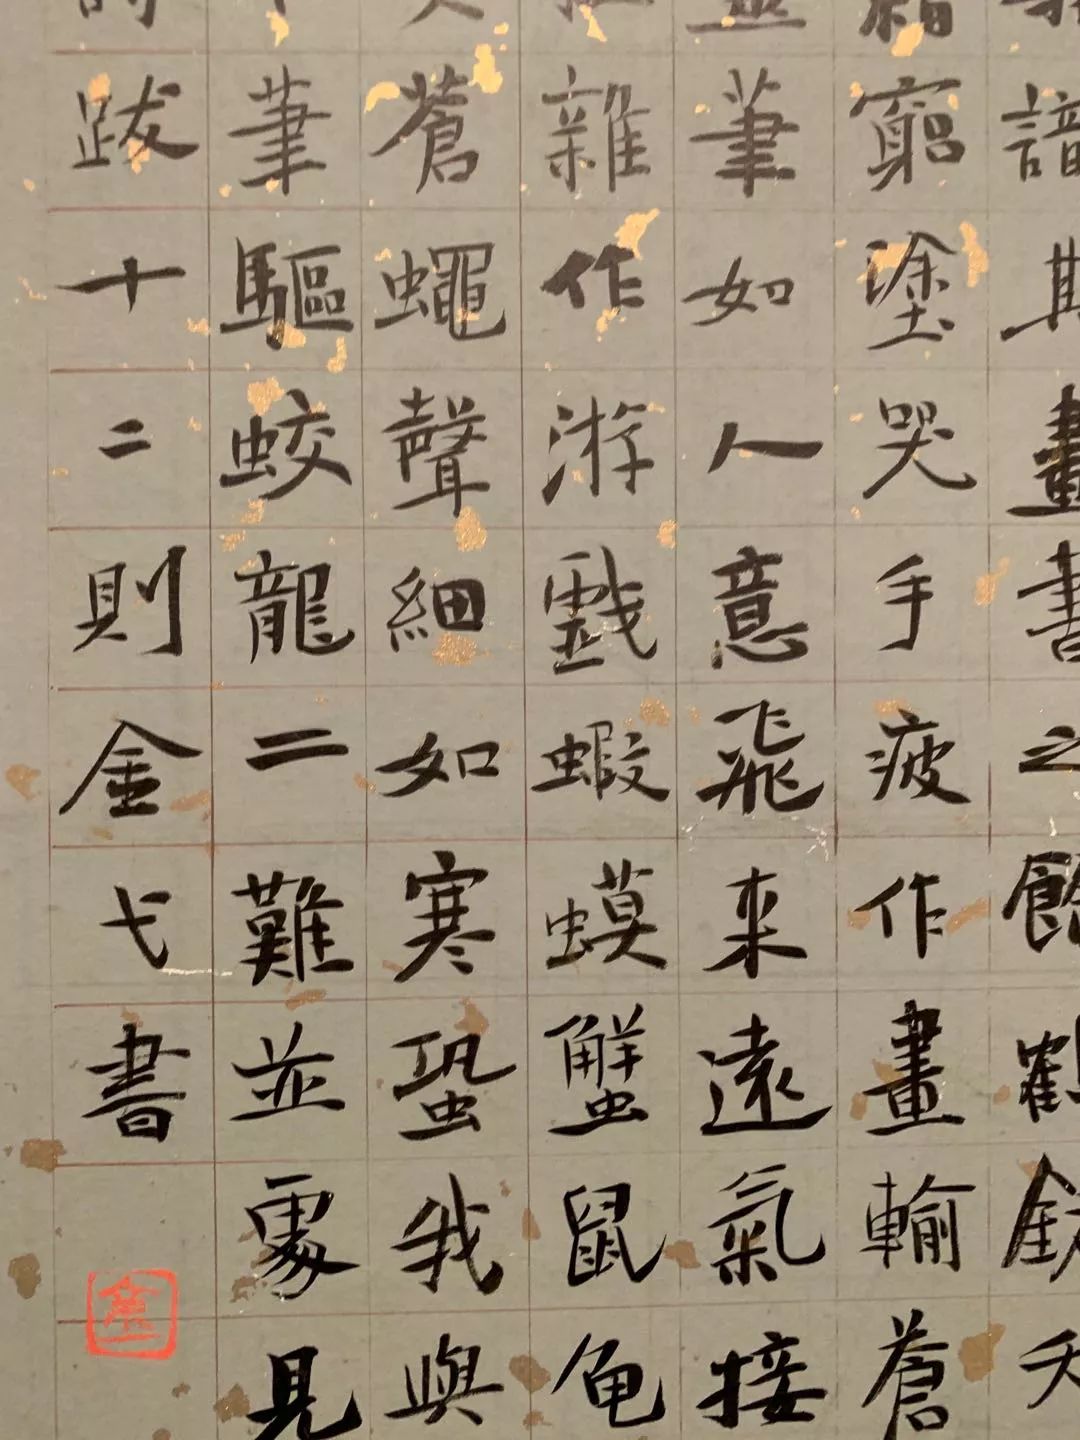 諳期畫書之餘鶴銘天
窮塗哭手疲作畫輸蒼
筆如人意飛来遠氣接
雜作游戲蝦蟆蟹鼠龟
蒼蠅聲細如寒蛩我與
筆驅蛟龍二難並處見
跋十二則金弋書